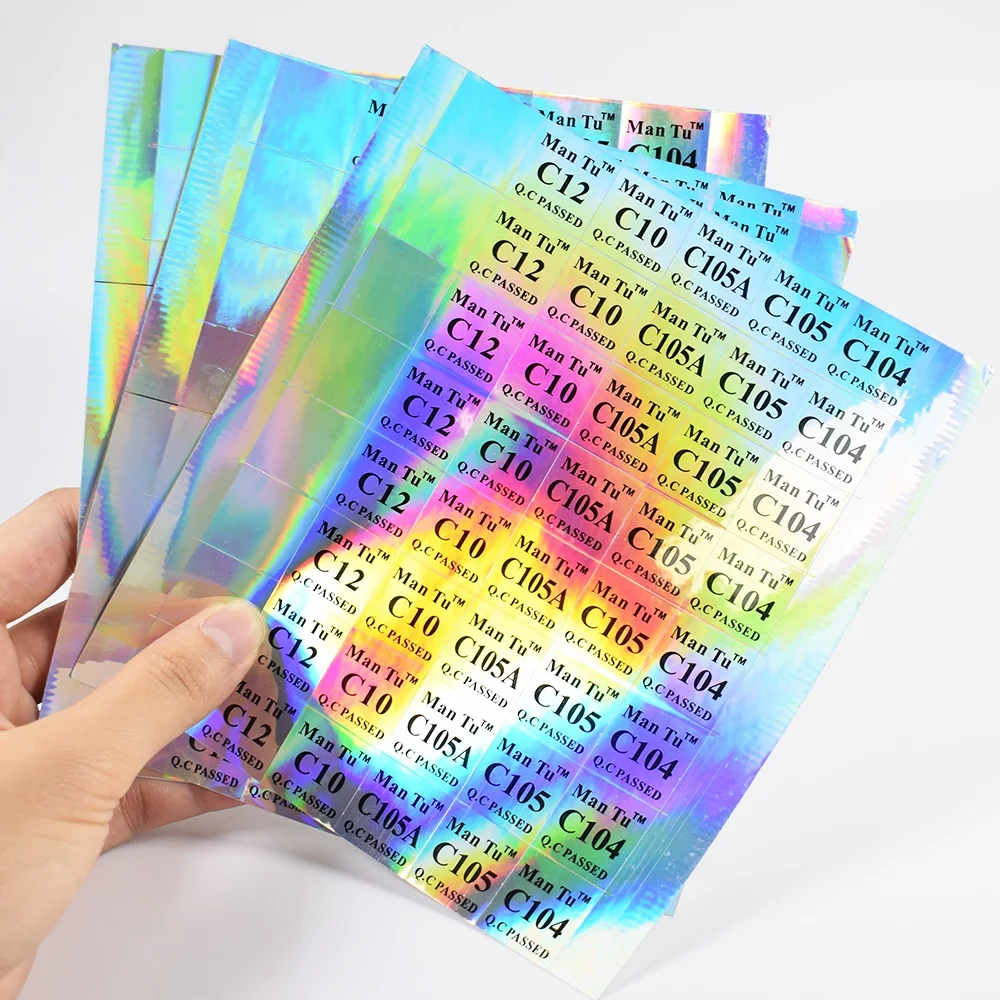 Man Tu™
Man Tu™
C104
Man Tu™
Man Tu™
Man Tu™
C12
Q.C PASSED
Man Tu™
C10
Q.C PASSED
Man Tu™
C105A
Q.C PASSED
Man Tu™
C105
Q.C PASSED
Man Tu™
C104
Q.C PASSED
Man Tu™
C12
Q.C PASSED
Man Tu™
C10
Q.C PASSED
Man Tu™
C105A
Q.C PASSED
Man Tu™
C105
Q.C PASSED
Man Tu™
C104
Q.C PASSED
Man Tu™
C12
Q.C PASSED
Man Tu™
C10
Q.C PASSED
Man Tu™
C105A
Q.C PASSED
Man Tu™
C105
Q.C PASSED
Man Tu™
C104
Q.C PASSED
Man Tu™
C12
Q.C PASSED
Man Tu™
C10
Q.C PASSED
Man Tu™
C105A
Q.C PASSED
Man Tu™
C105
Q.C PASSED
Man Tu™
C104
Q.C PASSED
Man Tu™
C12
Q.C PASSED
Man Tu™
C10
Q.C PASSED
Man Tu™
C105A
Q.C PASSED
Man Tu™
C105
Q.C PASSED
Man Tu™
C104
Q.C PASSED
Man Tu™
C12
Q.C PASSED
Man Tu™
C10
Q.C PASSED
Man Tu™
C105A
Q.C PASSED
Man Tu™
C105
Q.C PASSED
Man Tu™
C104
Q.C PASSED
Man Tu™
C12
Q.C PASSED
Man Tu™
C10
Q.C PASSED
Man Tu™
C105A
Q.C PASSED
Man Tu™
C105
Q.C PASSED
Man Tu™
C104
Q.C PASSED
Man Tu™
C12
Q.C PASSED
Man Tu™
C10
Q.C PASSED
Man Tu™
C105A
Q.C PASSED
Man Tu™
C105
Q.C PASSED
Man Tu™
C104
Q.C PASSED
Q.C PASSED